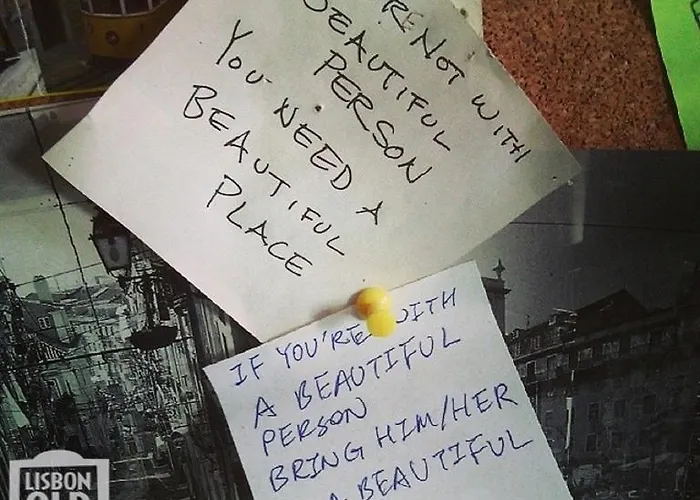 RE NOT WITH
BEAUTIFUL
PERSON
YOU NEED A
BEAUTIFUL
PLACE
IF YOU'RE WITH
A BEAUTIFUL
PERSON
BRING HIM/HER
A BEAUTIFUL
LISBON
OLD